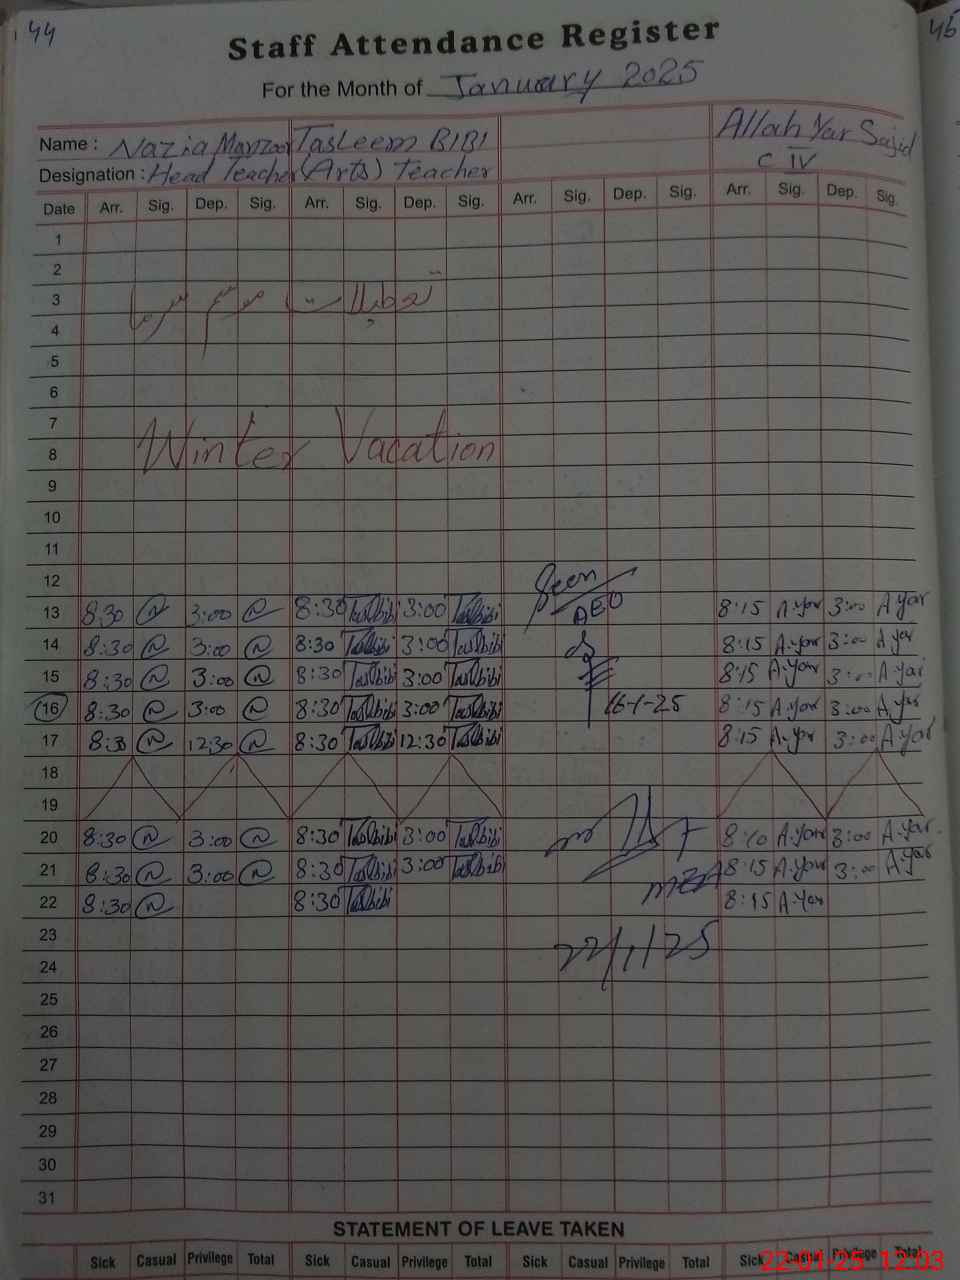 44
45
Staff Attendance Register
For the Month of January 2025
Name : Nazia Manzoor Tasleem BIBI Allah Yar Sajid
Designation : Head Teacher (Arts) Teacher C IV
Date Arr. Sig. Dep. Sig. Arr. Sig. Dep. Sig. Arr. Sig. Dep. Sig. Arr. Sig. Dep. Sig.
1
2
3 تعطیلات موسم سرما
4
5
6
7
8 Winter Vacation
9
10
11
12 Seen
13 8:30 3:00 8:30 Taslbibi 3:00 Taslbibi AEO 8:15 A.Yar 3:00 A.Yar
14 8:30 3:00 8:30 Taslbibi 3:00 Taslbibi 8:15 A.Yar 3:00 A.Yar
15 8:30 3:00 8:30 Taslbibi 3:00 Taslbibi 8:15 A.Yar 3:00 A.Yar
16 8:30 3:00 8:30 Taslbibi 3:00 Taslbibi 16-1-25 8:15 A.Yar 3:00 A.Yar
17 8:30 12:30 8:30 Taslbibi 12:30 Taslbibi 8:15 A.Yar 3:00 A.Yar
18
19
20 8:30 3:00 8:30 Taslbibi 3:00 Taslbibi 8:10 A.Yar 3:00 A.Yar.
21 8:30 3:00 8:30 Taslbibi 3:00 Taslbibi MEA 8:15 A.Yar 3:00 A.Yar
22 8:30 8:30 Taslbibi 8:15 A.Yar
23 22/1/25
24
25
26
27
28
29
30
31
STATEMENT OF LEAVE TAKEN
Sick Casual Privilege Total Sick Casual Privilege Total Sick Casual Privilege Total Sick Casual Privilege Total
22-01-25 12:03